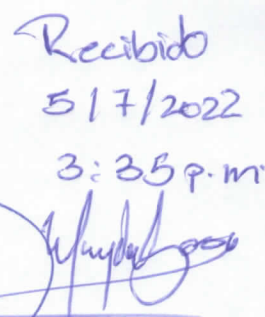 Recibido
5/7/2022
3:35 p.m